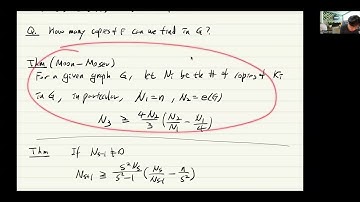 Q. How many copies of F can we find in G?
Thm (Moon-Moser)
For a given graph G, let Ni be the # of copies of Ki
in G, in particular, N1=n, N2=e(G)
N3 ≥ 4N2/3 (N2/N1 - N1/4)
Thm If Ns-1 ≠ 0
Ns+1 ≥ s²Ns/s²-1 (Ns/Ns-1 - n/s²)